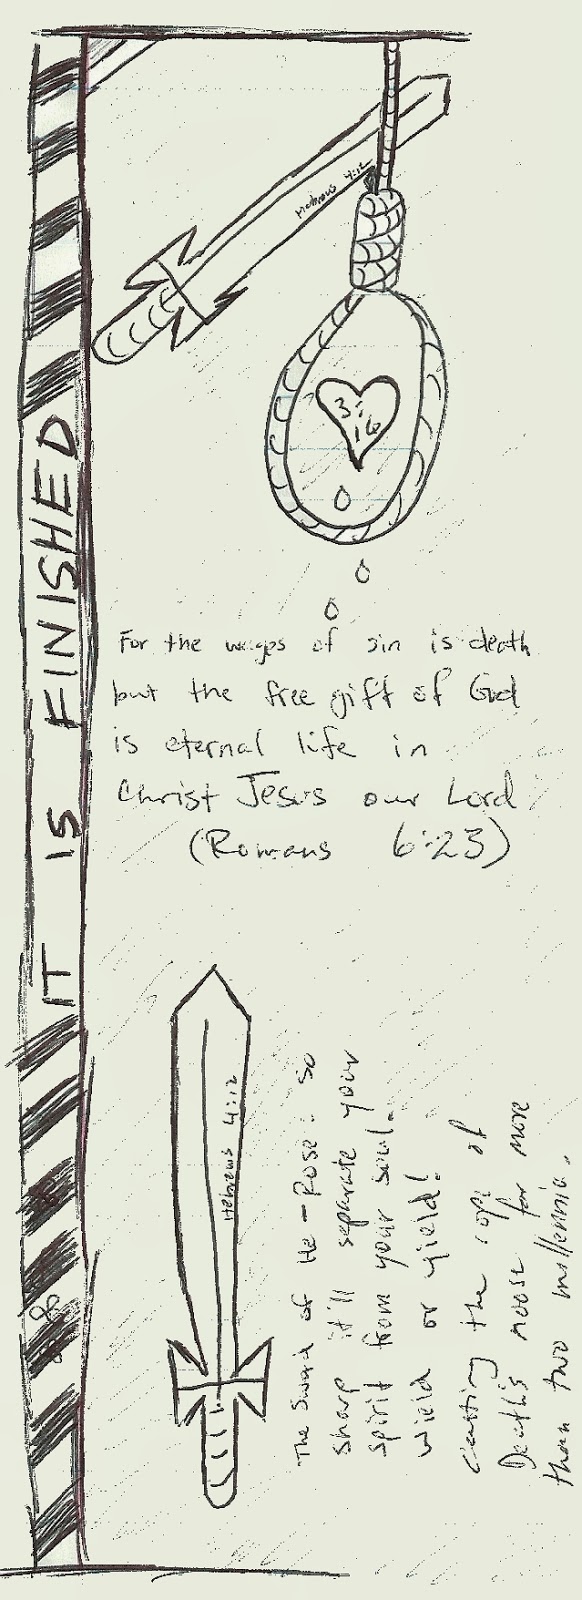 Hebrews 4:12
3:16
IT IS FINISHED
For the wages of sin is death
but the free gift of God
is eternal life in
Christ Jesus our Lord
(Romans 6:23)
Hebrews 4:12
The Sword of He-Rose: so
sharp it'll separate your
spirit from your soul.
Wield or yield!
Cutting the rope of
Death's noose for more
than two millennia.